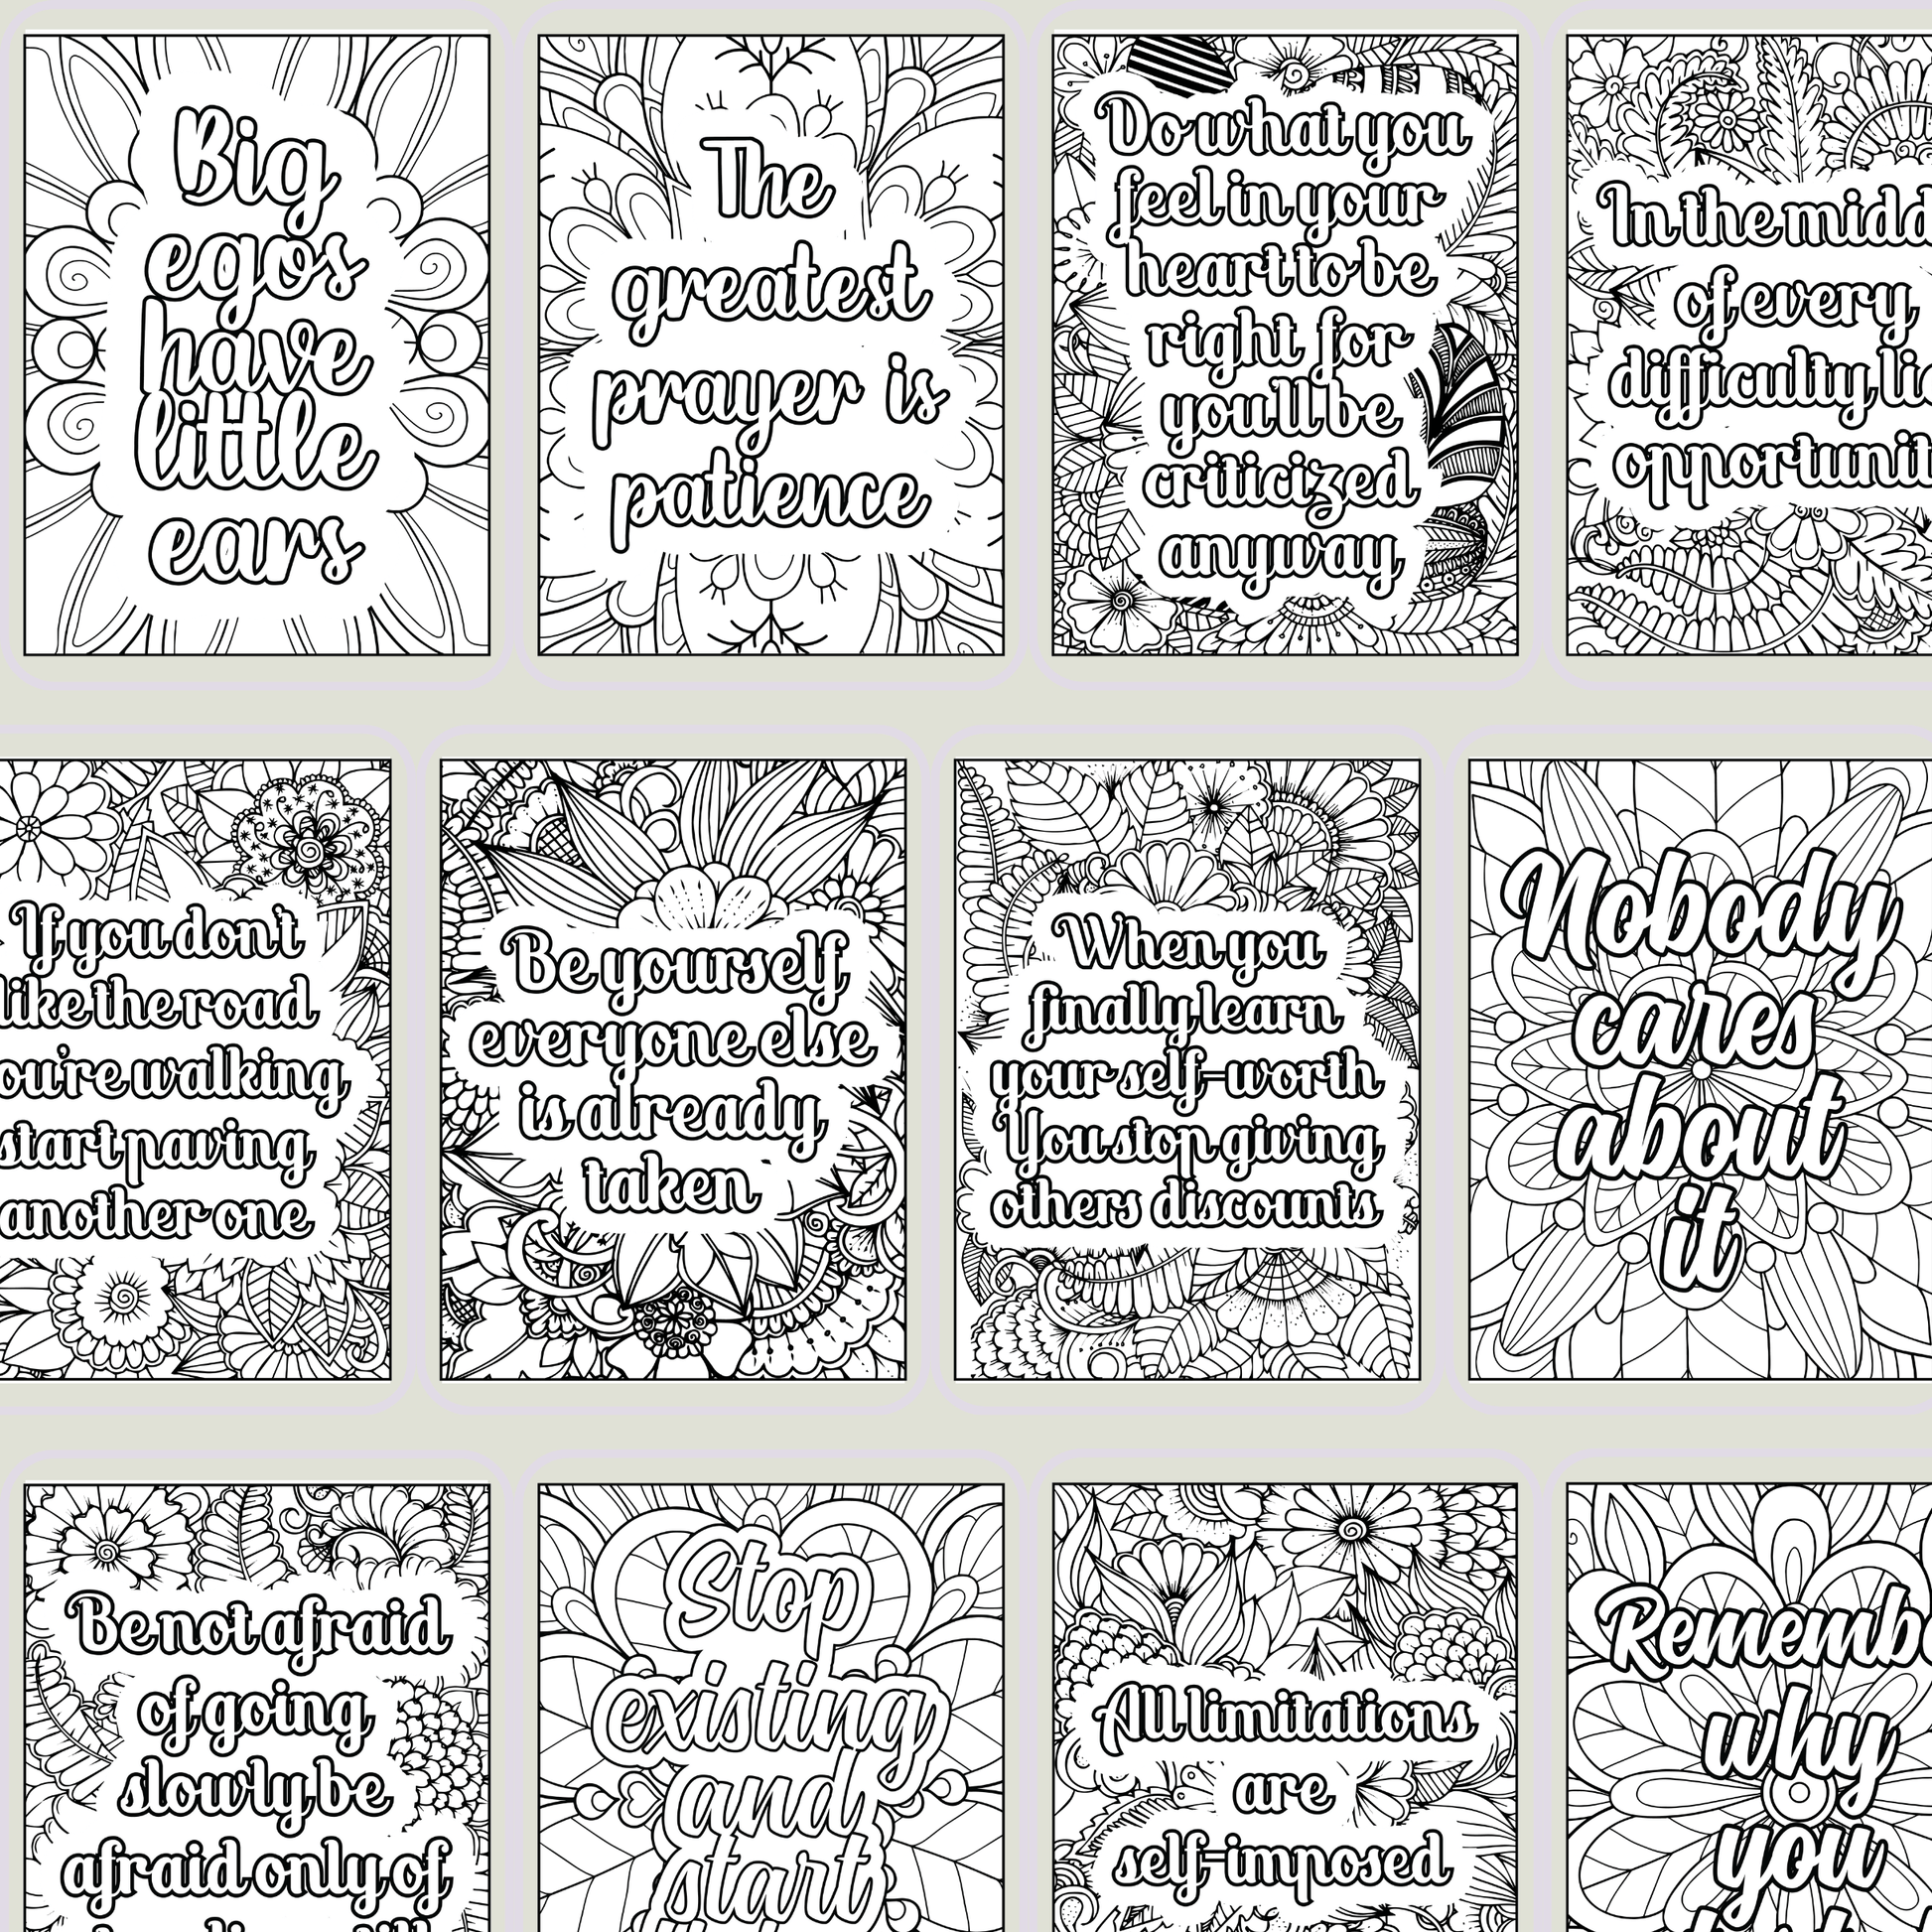 Big
egos
have
little
ears
The
greatest
prayer is
patience
Do what you
feel in your
heart to be
right for
youll be
criticized
anyway
In the midd
of every
difficulty li
opportunit
If you don't
like the road
ou're walking
start paving
another one
Be yourself
everyone else
is already
taken
When you
finally learn
your self-worth
You stop giving
others discounts
Nobody
cares
about
it
Be not afraid
of going
slowly be
afraid only of
Stop
existing
and
start
All limitations
are
self-imposed
Rememb
why
you